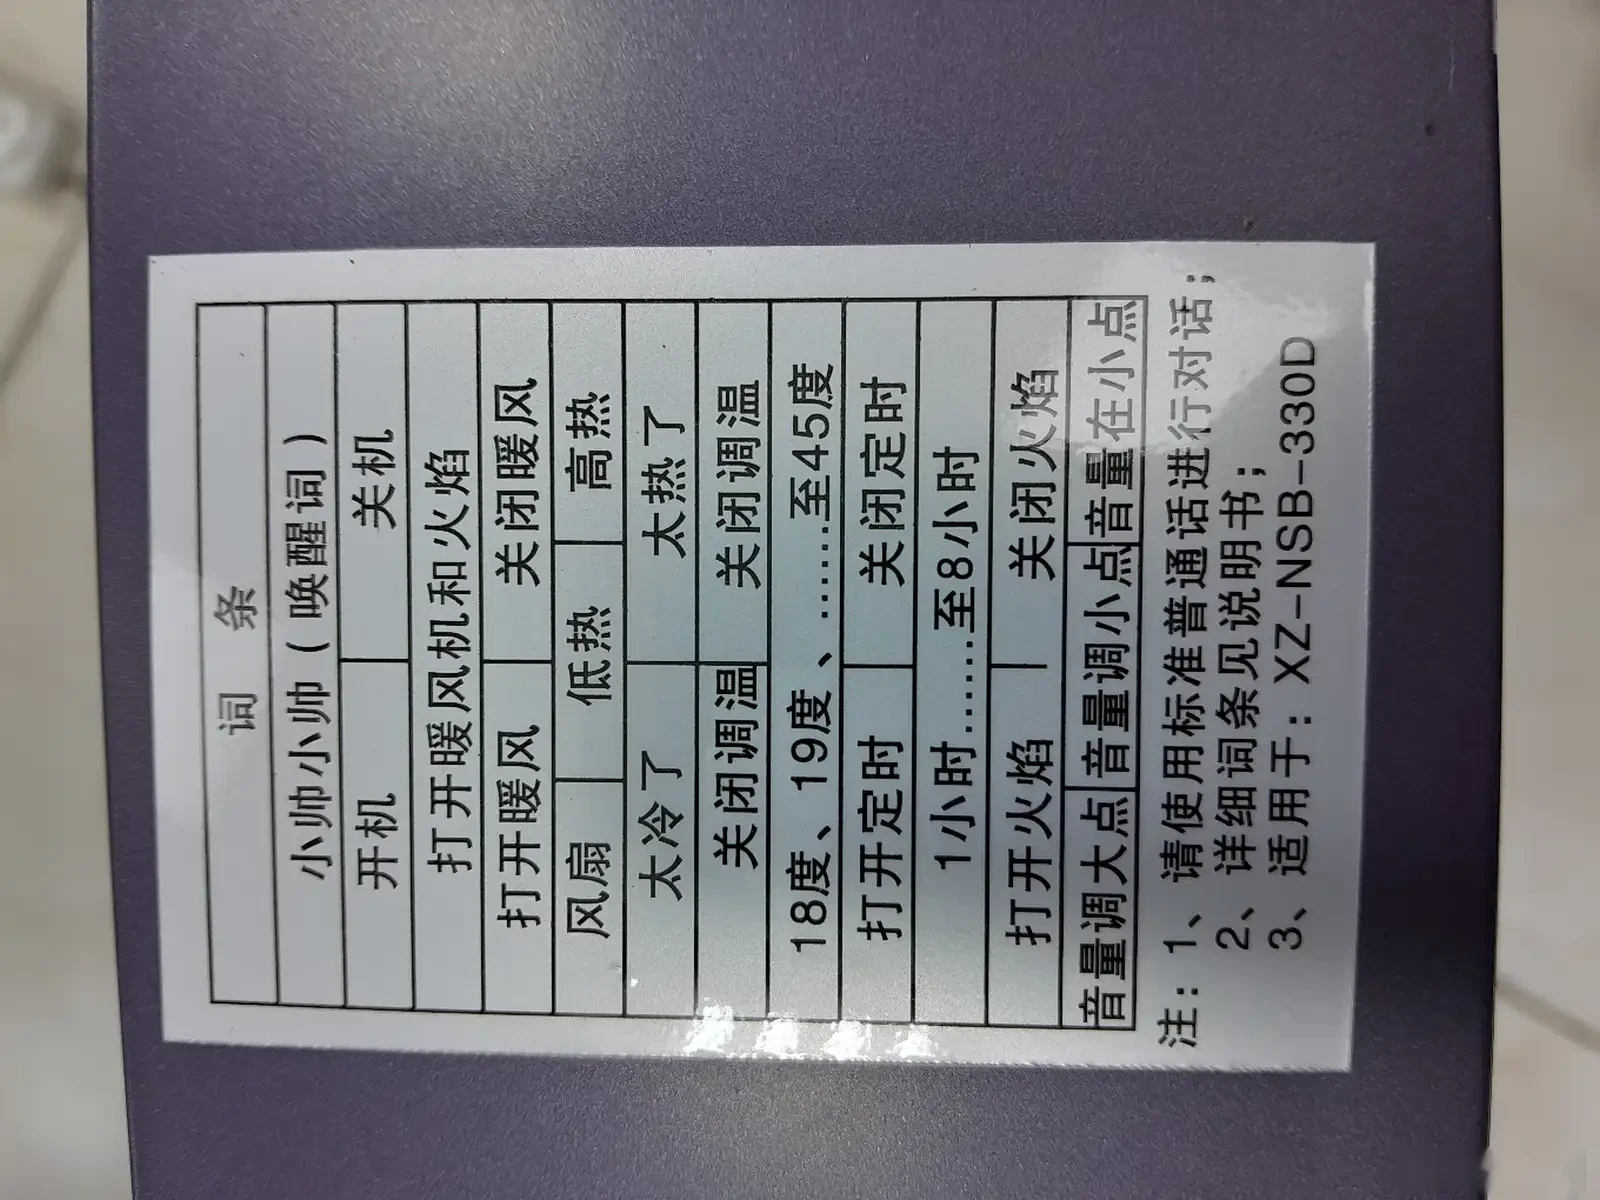 词 条
小帅小帅（唤醒词）
开机 关机
打开暖风机和火焰
打开暖风 关闭暖风
风扇 低热 高热
太冷了 太热了
关闭调温 关闭调温
18度、19度、……至45度
打开定时 关闭定时
1小时……至8小时
打开火焰 关闭火焰
音量调大点 音量调小点 音量在小点
注：1、请使用标准普通话进行对话；
2、详细词条见说明书；
3、适用于：XZ-NSB-330D